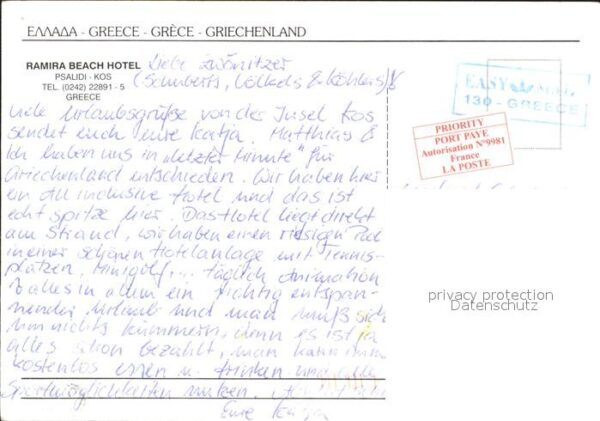 ΕΛΛΑΔΑ - GREECE - GRÈCE - GRIECHENLAND
RAMIRA BEACH HOTEL
PSALIDI - KOS
TEL. (0242) 22891 - 5
GREECE
Liebe Zwönitzer
(Schuberts, Völkels & Köhlers)!
viele Urlaubsgrüße von der Insel Kos
sendet euch eure Katja. Matthias &
ich haben uns in "letzter Minute" für
Griechenland entschieden. Wir haben hier
ein All inclusive Hotel und das ist
echt spitze hier. Das Hotel liegt direkt
am Strand, wir haben einen riesigen Pool
in einer schönen Hotelanlage mit Tennis-
plätzen, Minigolf, ... täglich Animation
& alles in allem ein richtig entspan-
nender Urlaub und man muß sich
um nichts kümmern, denn es ist ja
alles schon bezahlt, man kann
kostenlos essen u. trinken und
Sportmöglichkeiten nutzen.
Eure Katja
EASY
130 - GREECE
PRIORITY
PORT PAYE
Autorisation N°9981
France
LA POSTE
privacy protection
Datenschutz